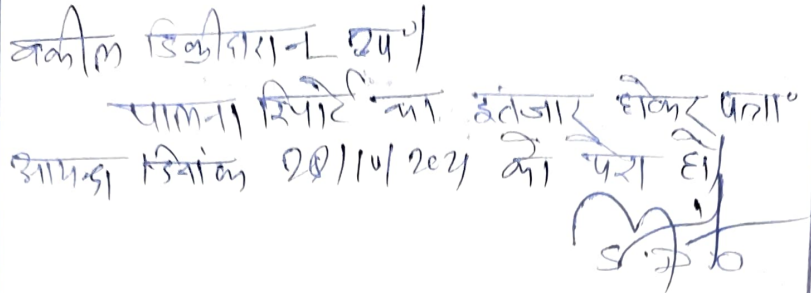 वकील डिक्रीदारान उप०।
पालना रिपोर्ट का इंतजार होकर पत्रा०
आयन्दा दिनांक 28/10/2021 को पेश हो।